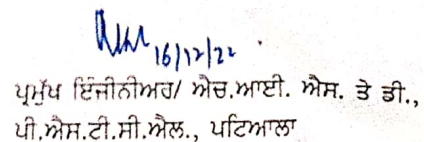 16/12/22
ਪ੍ਰਮੁੱਖ ਇੰਜੀਨੀਅਰ/ ਐਚ.ਆਈ. ਐਸ. ਤੇ ਡੀ.,
ਪੀ.ਐਸ.ਟੀ.ਸੀ.ਐਲ., ਪਟਿਆਲਾ